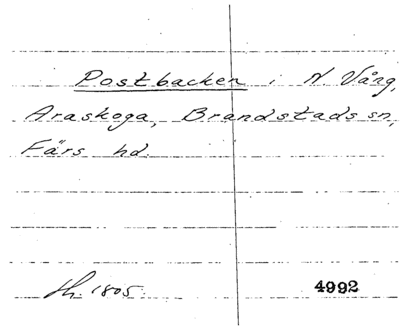 Postbacken i N Vång,
Araskoga, Brandstads sn,
Färs hd.
Sk. 1805. 4992